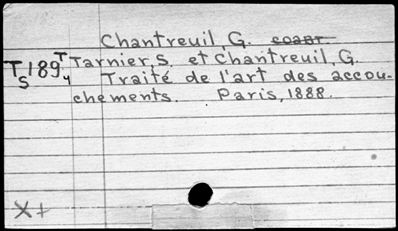 Chantreuil, G. coaut
T Tarnier, S. et Chantreuil, G.
TS189y Traité de l'art des accou-
chements. Paris, 1888.
X+